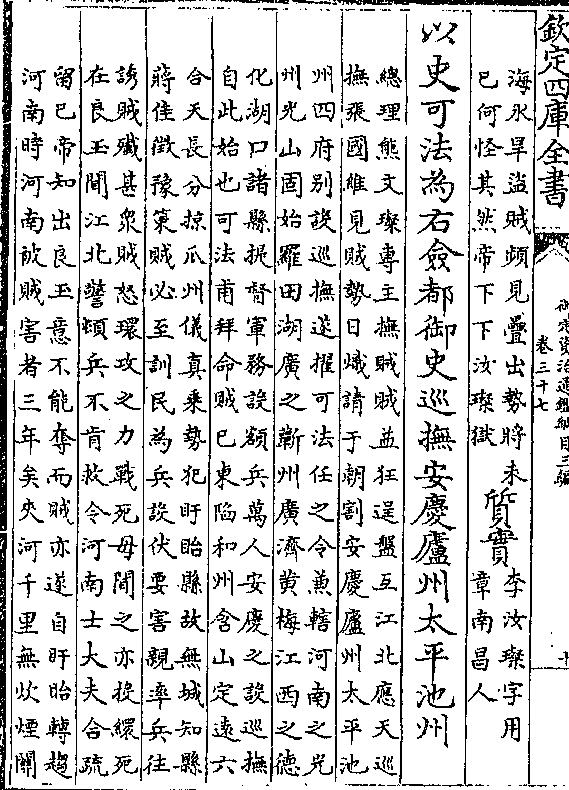 欽定四庫全書
御定資治通鑑綱目三編
卷三十七
海水旱盜賊頻見疊出勢將未
已何怪其然帝下下汝璨獄
質實
李汝璨字用
章南昌人
以史可法為右僉都御史巡撫安慶廬州太平池州
總理熊文燦專主撫賊賊益狂逞盤互江北應天巡
撫張國維見賊勢日熾請于朝割安慶廬州太平池
州四府别設巡撫遂擢可法任之令兼轄河南之光
州光山固始羅田湖廣之蘄州廣濟黄梅江西之德
化湖口諸縣提督軍務設額兵萬人安慶之設巡撫
自此始也可法甫拜命賊已東陷和州含山定遠六
合天長分掠瓜州儀真乘勢犯盱眙縣故無城知縣
蔣佳徵豫策賊必至訓民為兵設伏要害親率兵往
誘賊殲甚衆賊怒環攻之力戰死母間之亦投繯死
在良玉間江北警頻兵不肯救令河南士大夫合疏
留已帝知出良玉意不能奪而賊亦遂自盱眙轉趨
河南時河南被賊害者三年矣夾河千里無炊煙關